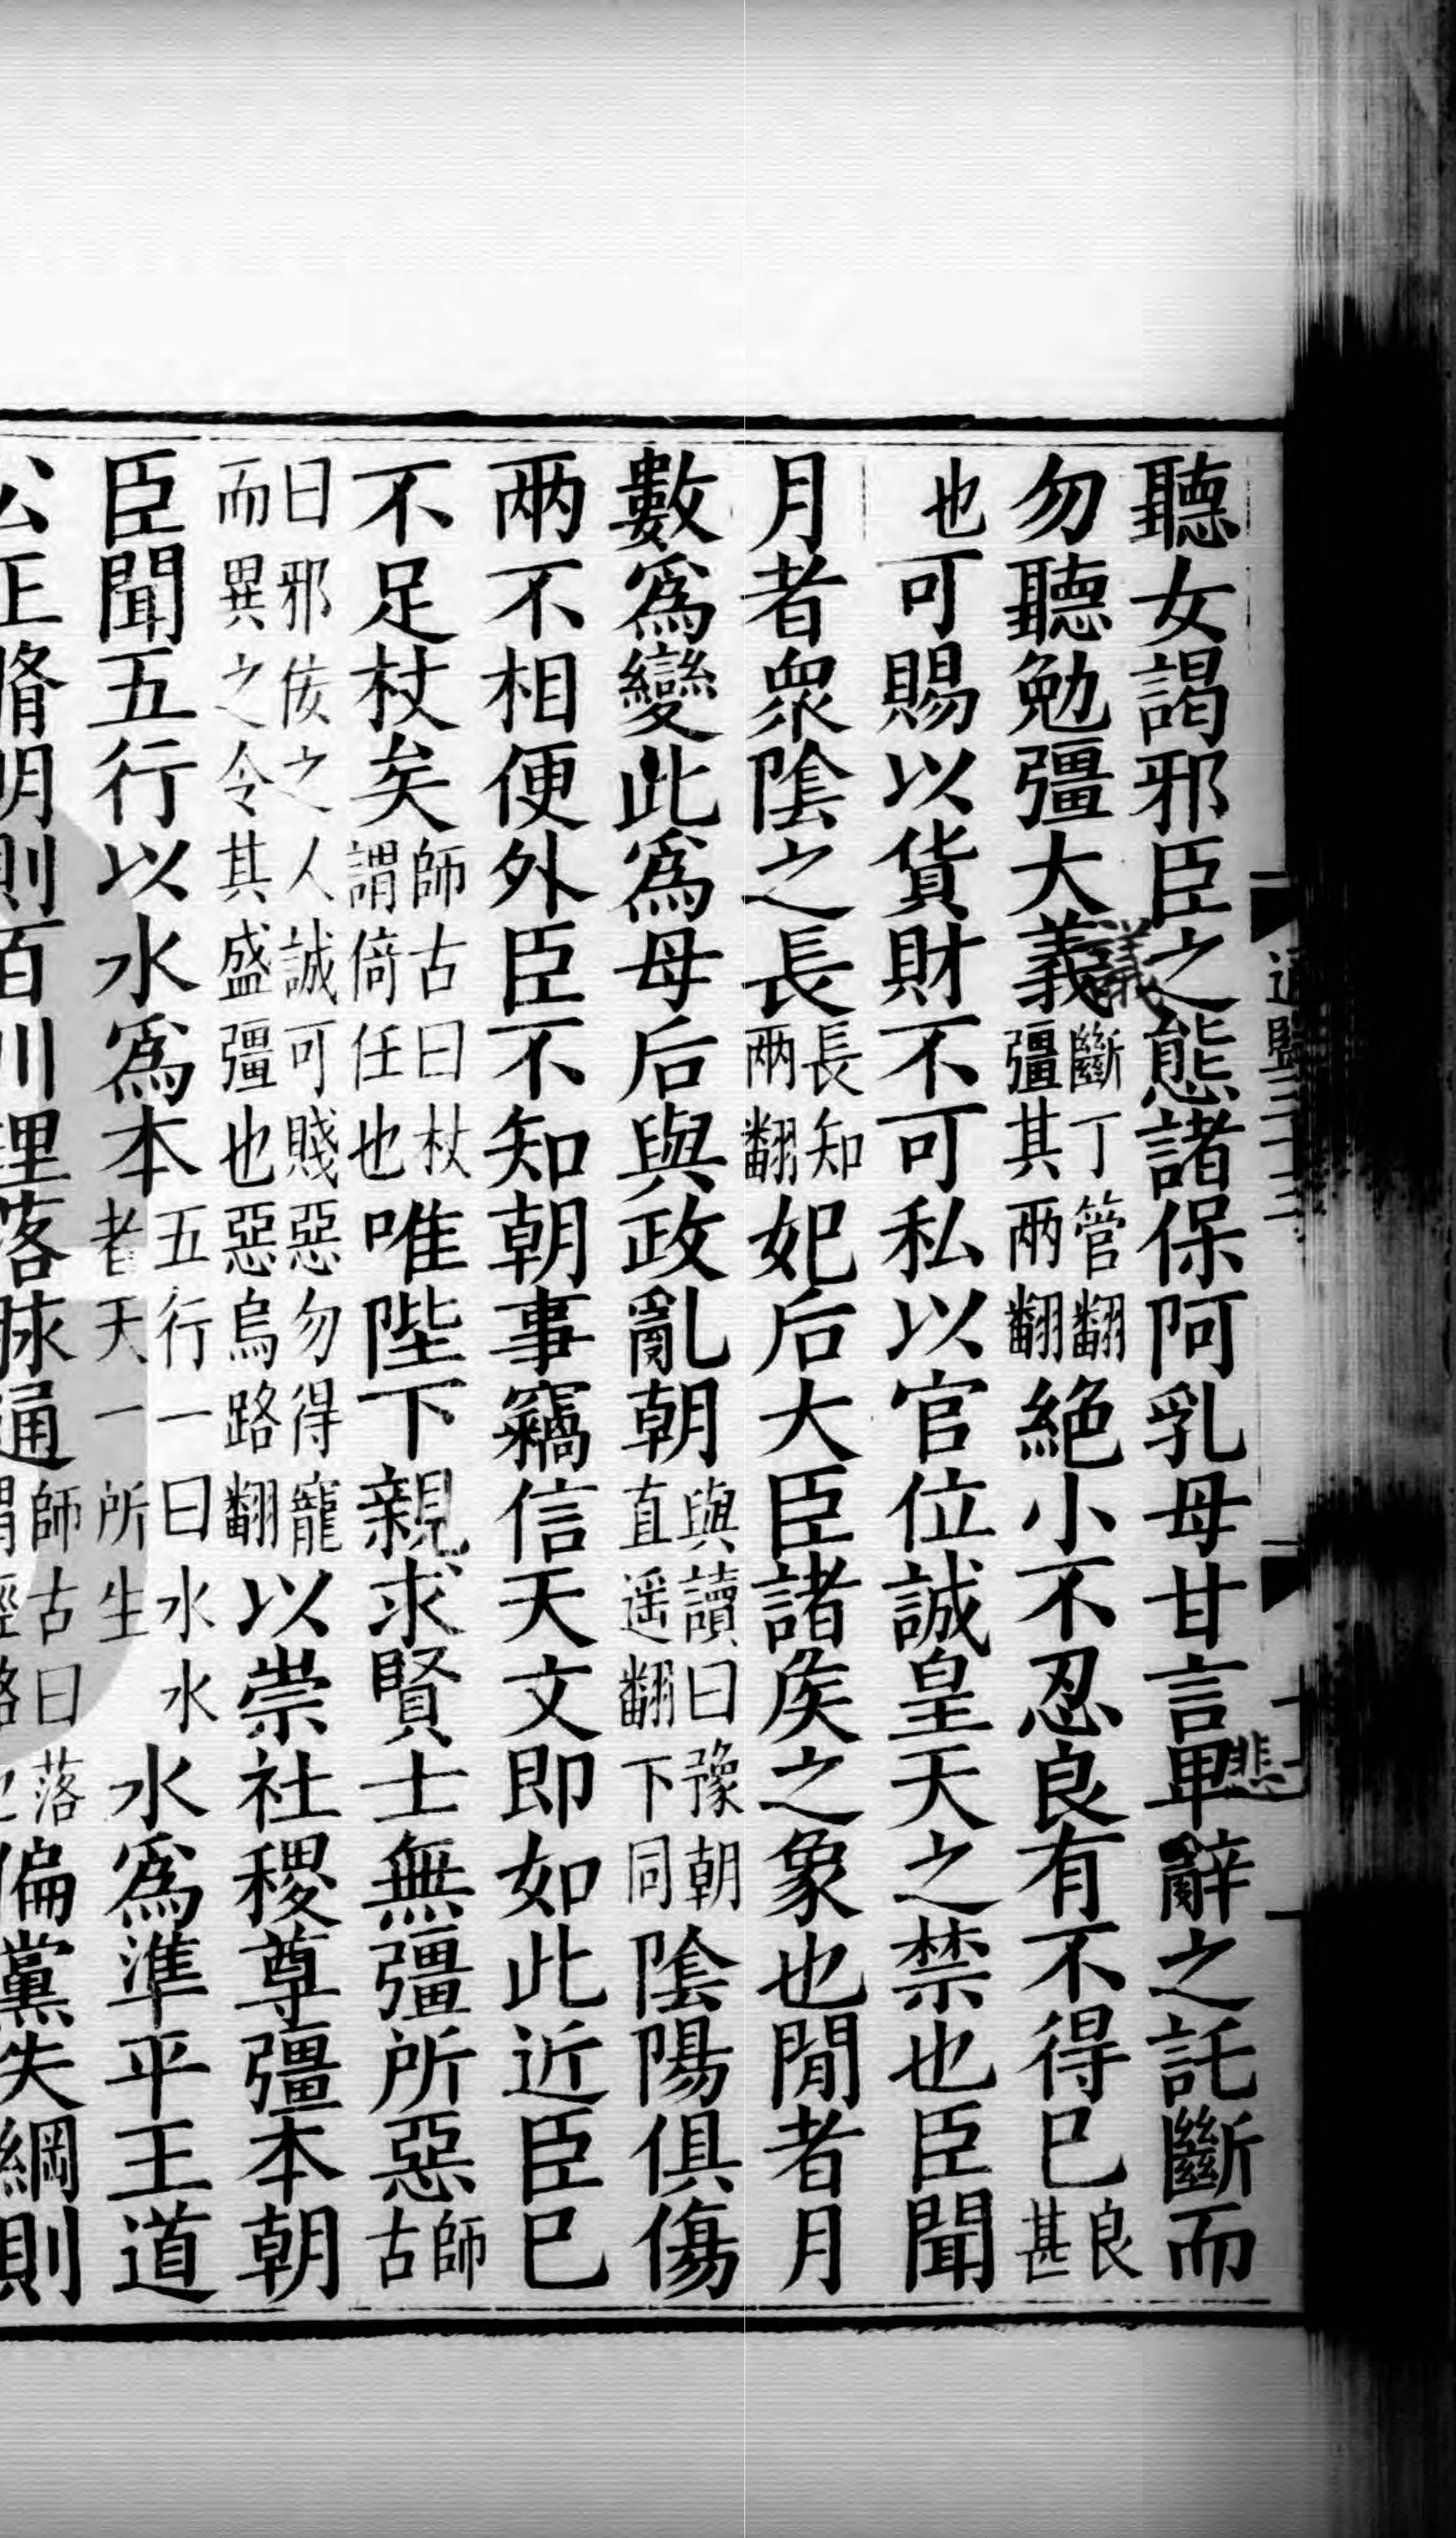 聽女謁邪臣之態諸保阿乳母甘言卑辭之託斷而
勿聽勉彊大義斷丁管翻彊其兩翻絶小不忍良有不得已良甚
也可賜以貨財不可私以官位誠皇天之禁也臣聞
月者衆陰之長長知兩翻妃后大臣諸侯之象也閒者月
數爲變此爲母后與政亂朝與讀曰豫朝直遥翻下同陰陽俱傷
兩不相便外臣不知朝事竊信天文即如此近臣已
不足杖矣師古曰杖謂倚任也唯陛下親求賢士無彊所惡師古
曰邪佞之人誠可賤惡勿得寵而異之令其盛彊也惡烏路翻以崇社稷尊彊本朝
臣聞五行以水爲本五行一曰水水者天一所生水爲準平王道
公正脩明則百川理落脉通師古曰落謂經絡也偏黨失綱則